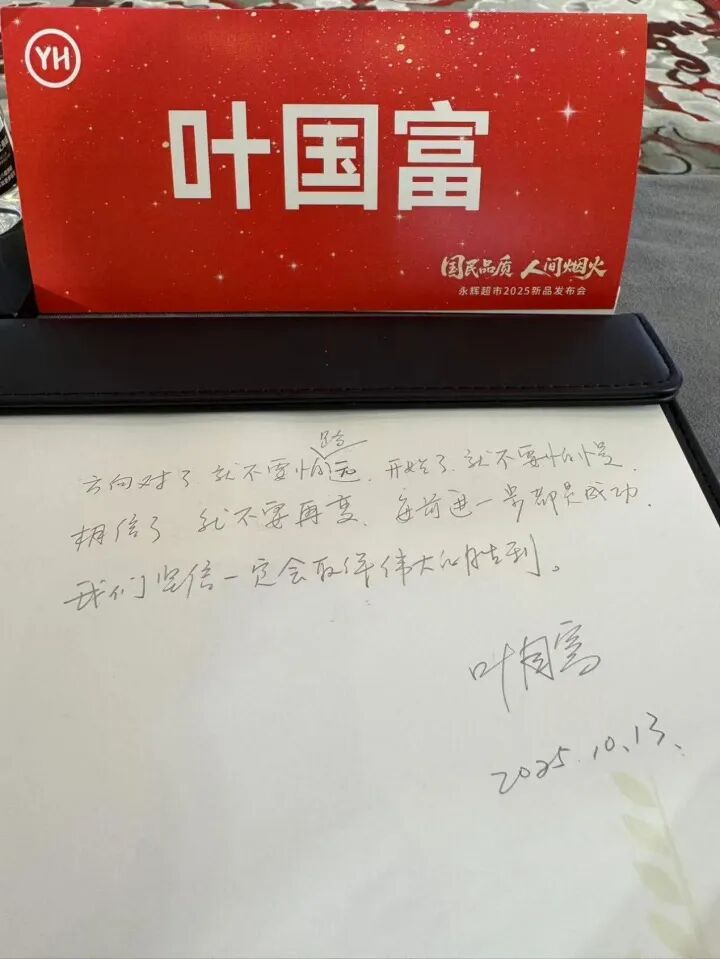 YH
叶国富
国民品质 人间烟火
永辉超市2025新品发布会
路
方向对了就不要怕远,开始了就不要怕慢,
相信了就不要再变、每前进一步都是成功.
我们坚信一定会取得伟大的胜利。
叶国富
2025.10.13.